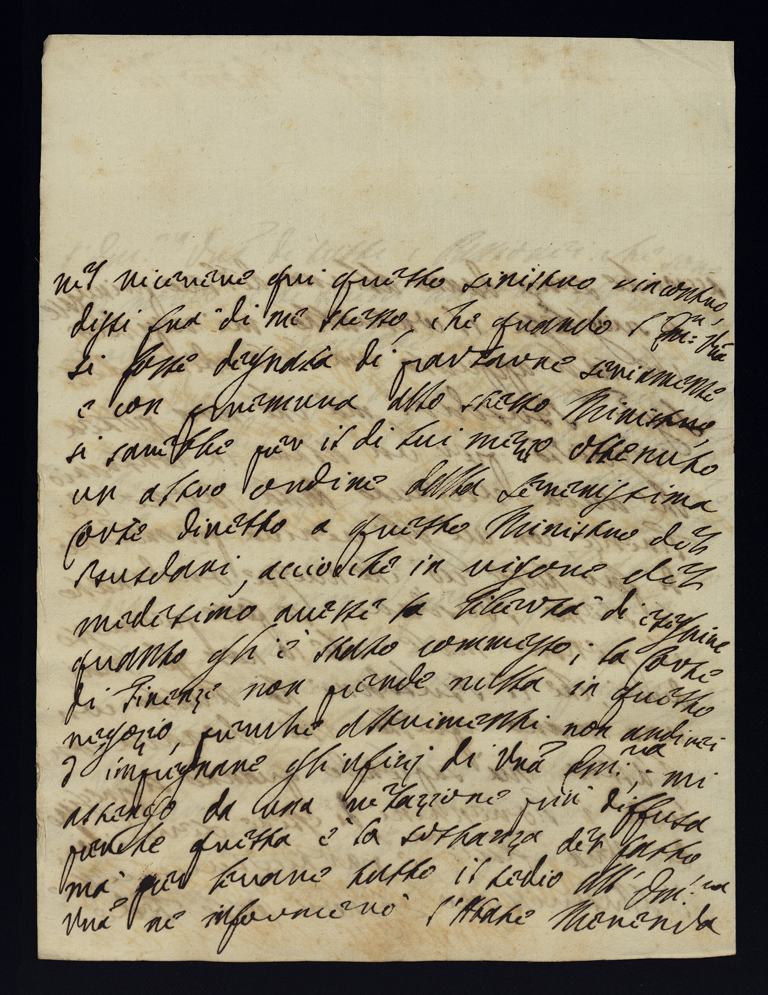 nel ricevere qui questo sinistro rincontro,
dissi fra di me stesso, che quando l'Em:ª Vrã
si fosse degnata di parlarne seriamente
e con premura allo stesso Ministro,
si sarebbe per il di lui mezzo ottenuto
un altro ordine della Serenissima
Corte diretto a questo Ministro del
Busdari, acciochè in vigore del
medesimo avesse la libertà di eseguire
quanto gli è stato commesso; la Corte
di Firenze non perde nulla in questo
negozio, perche altrimenti non ardirei
d'impegnare gli ufizij di Vrã Em:za; mi
astengo da una relazione più diffusa
perche questa è la sostanza del fatto
mà per levare tutto il tedio all' Em:za
Vrã ne informerò l'Abate Merenda